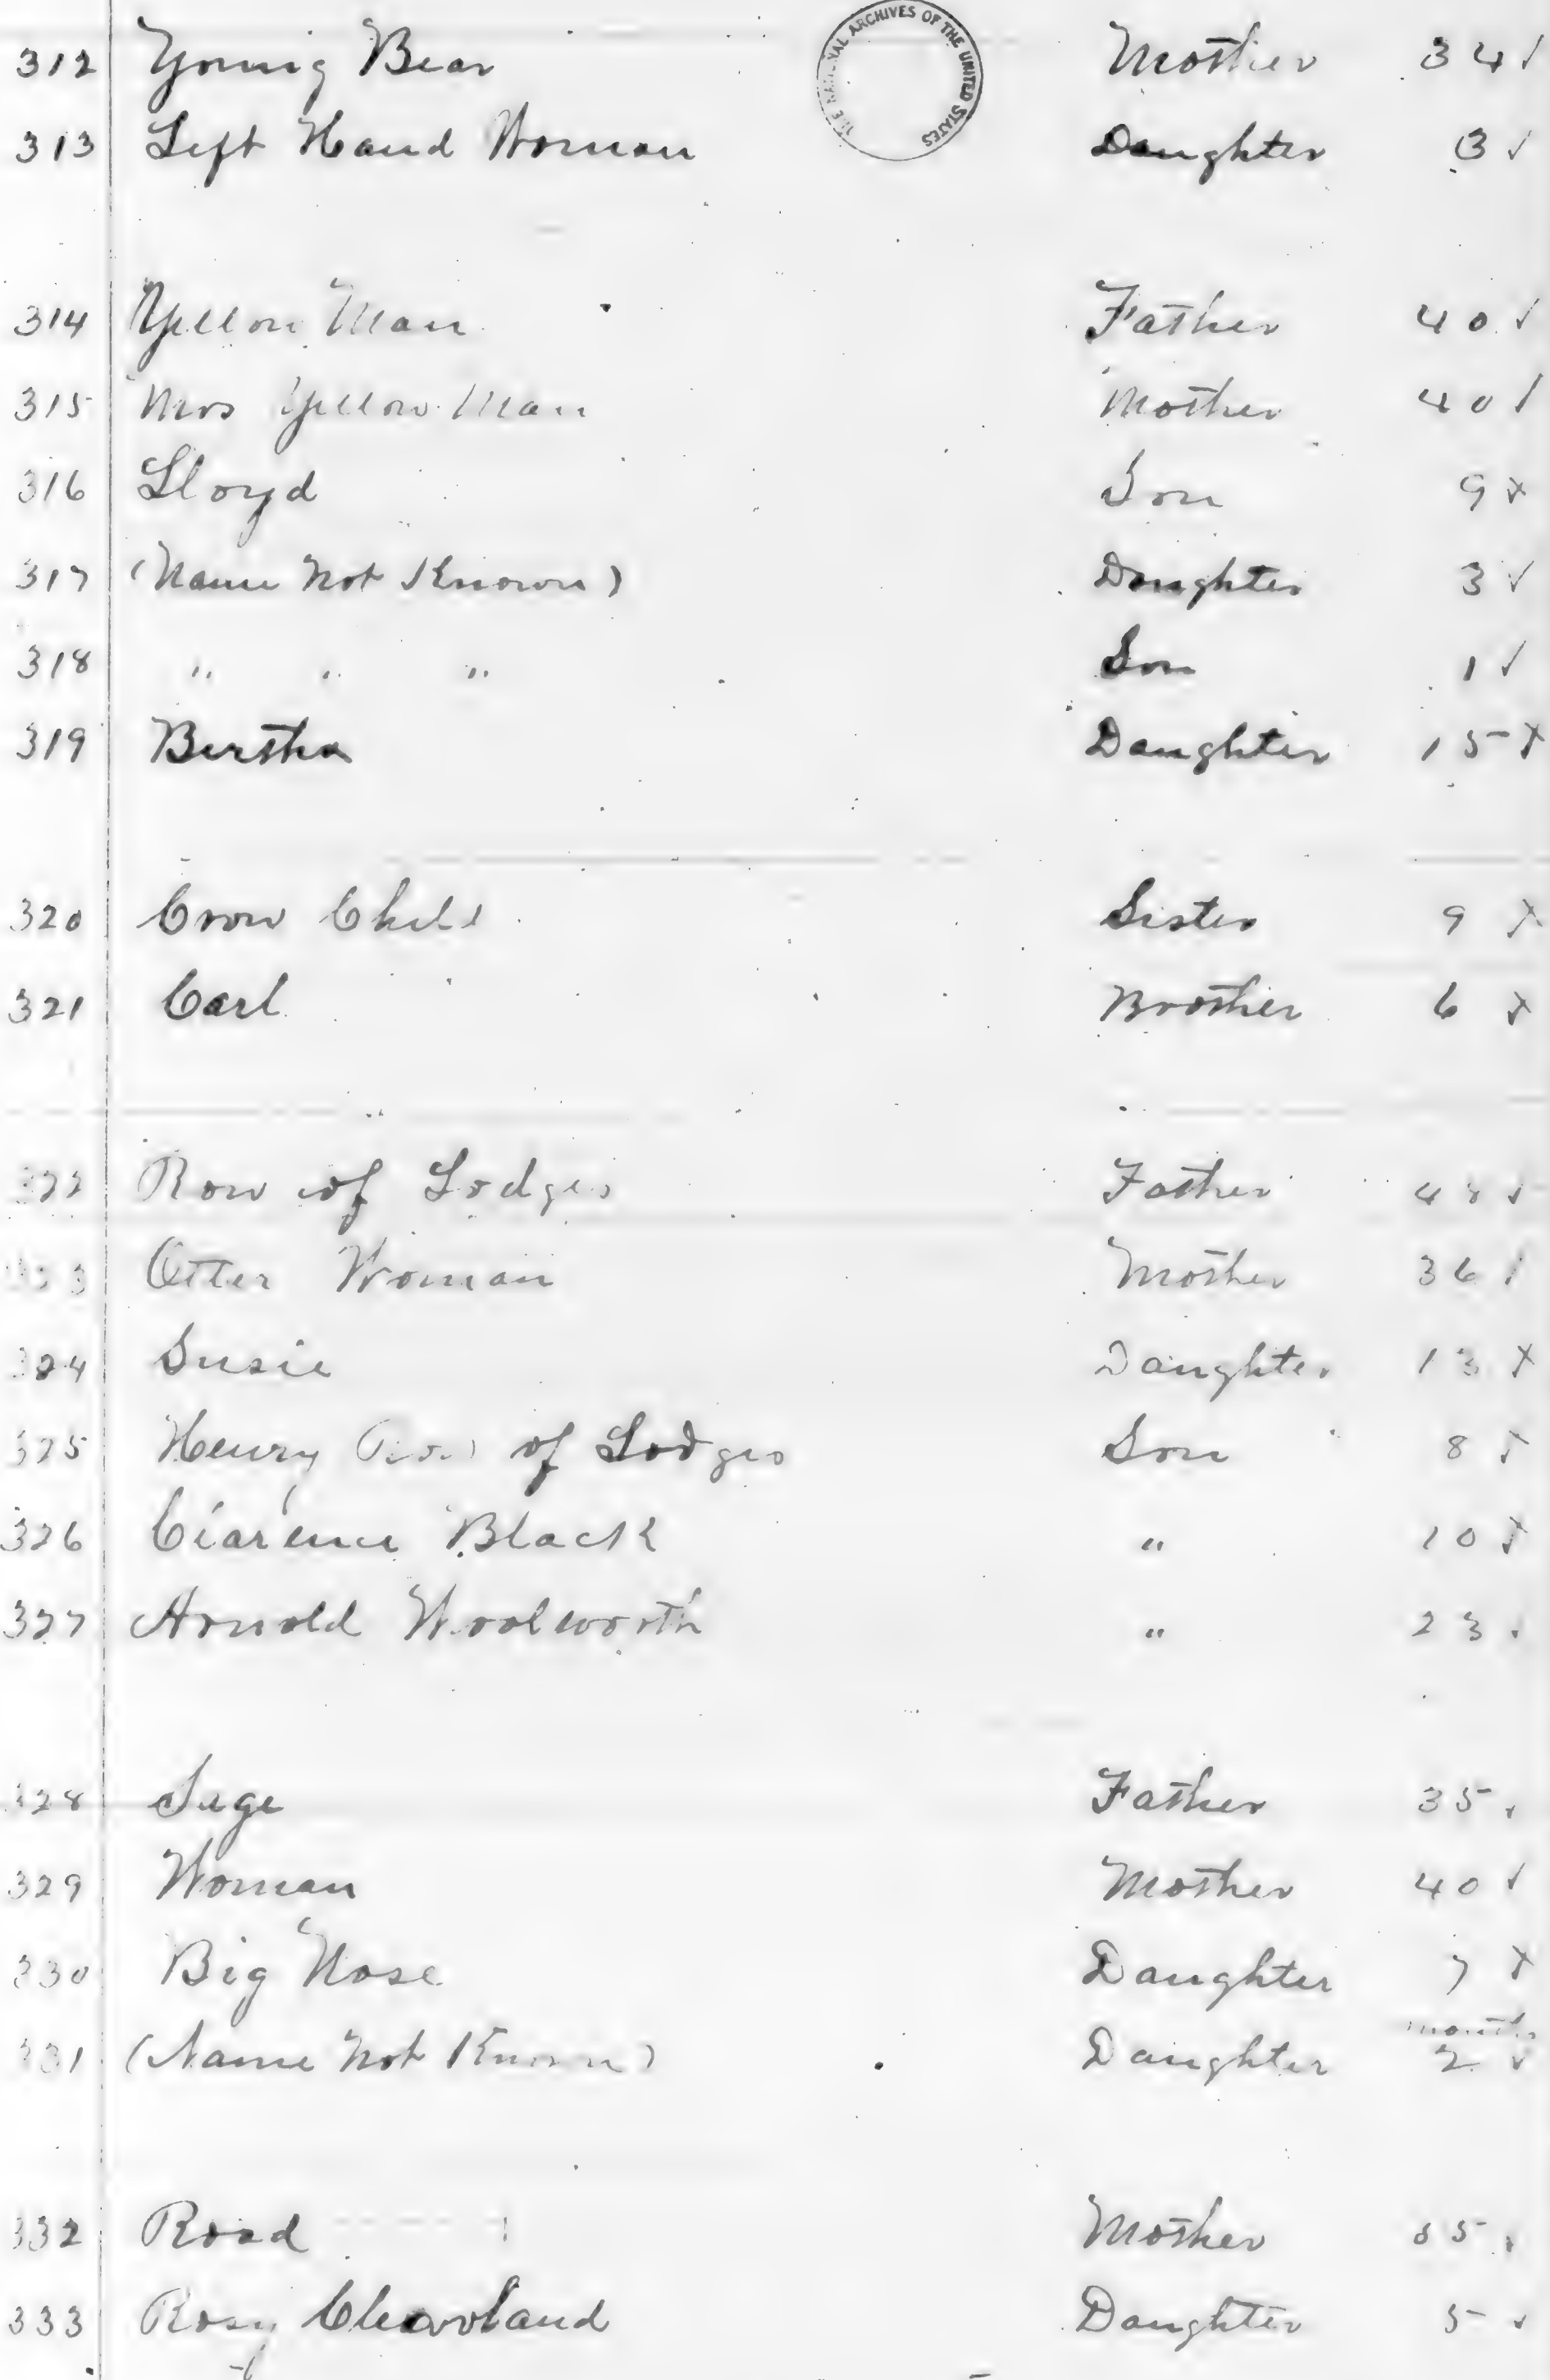 THE NATIONAL ARCHIVES OF THE UNITED STATES
312 Young Bear Mother 34 ✓
313 Left Hand Woman Daughter 3 ✓
314 Yellow Man Father 40 ✓
315 Mrs Yellow Man Mother 40 ✓
316 Lloyd Son 9 x
317 (Name Not Known) Daughter 3 ✓
318 " " " Son 1 ✓
319 Bertha Daughter 15 x
320 Crow Child Sister 9 x
321 Carl Brother 6 x
322 Row of Lodges Father 48 ✓
323 Otter Woman Mother 36 ✓
324 Susie Daughter 13 x
325 Henry Row of Lodges Son 8 x
326 Clarence Black " 10 x
327 Arnold Woolworth " 23
328 Sage Father 35
329 Woman Mother 40 ✓
330 Big Nose Daughter 7 x
331 (Name Not Known) Daughter months 2 ✓
332 Road Mother 55
333 Rosy Cleaveland Daughter 5 ✓